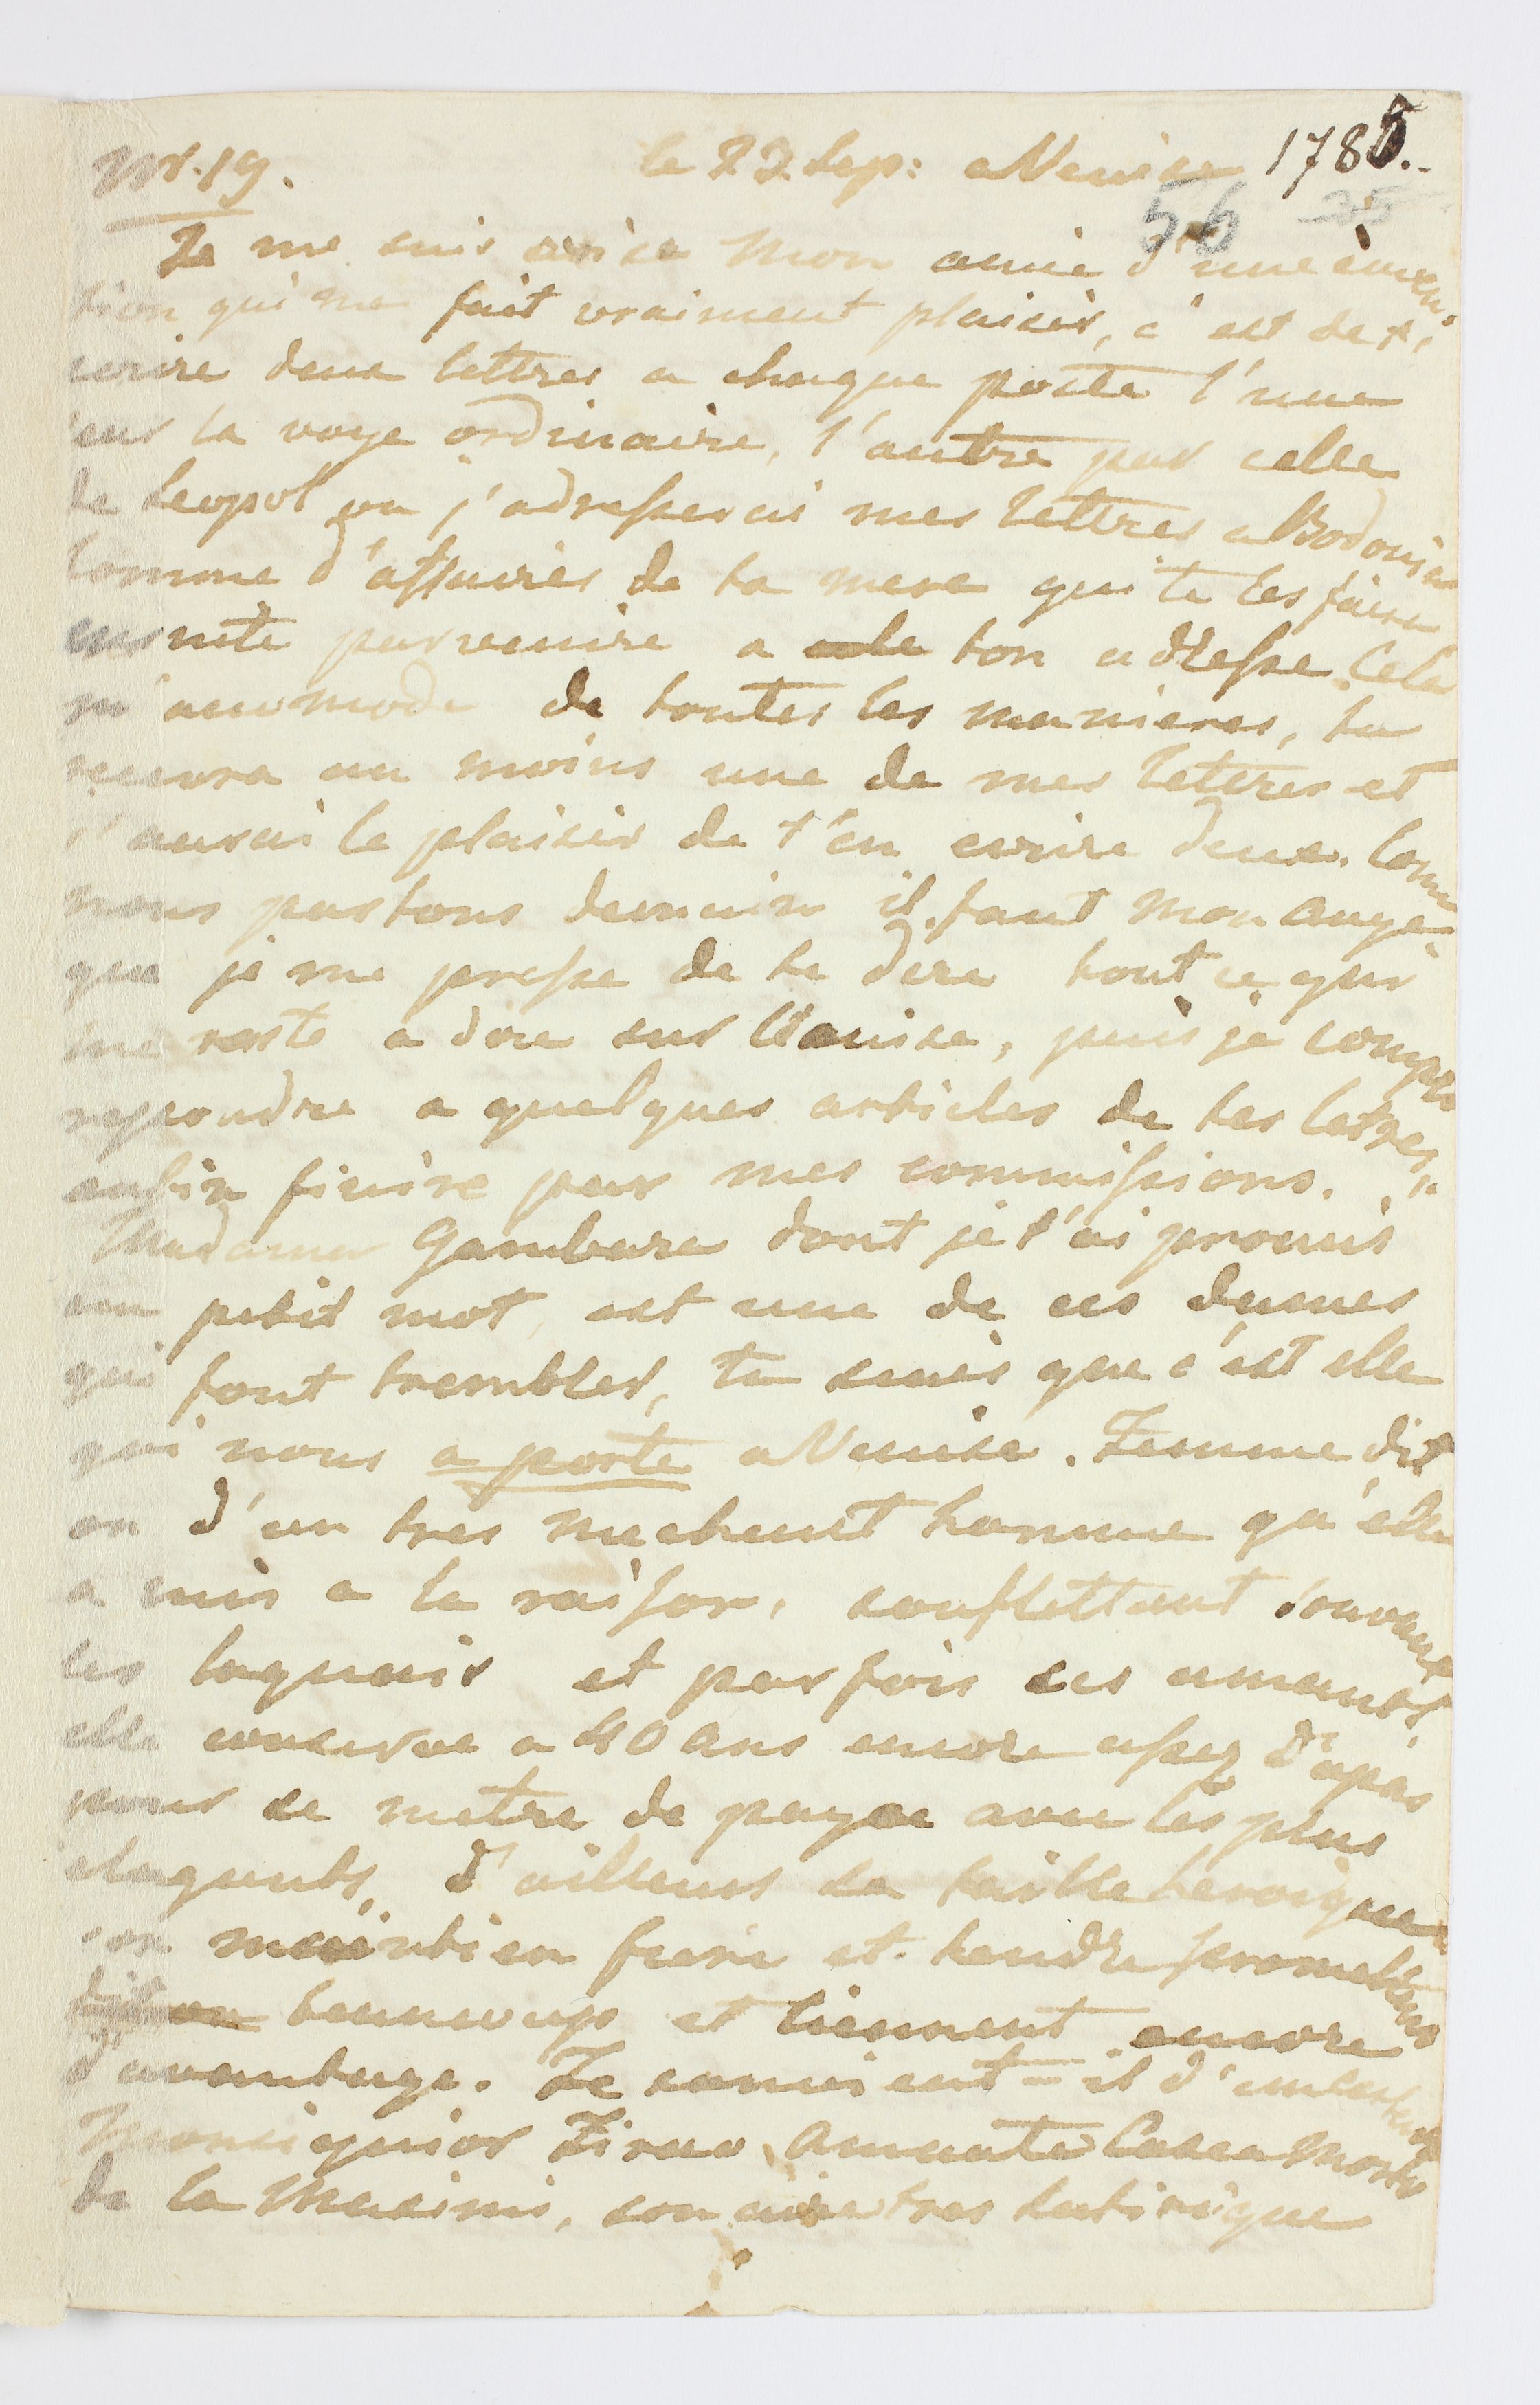 Nr. 19. le 23. Sep: a Venise 1785.
56 25
Je me suis avise Mon amie d'une inven-
tion qui me fait vraiment plaisir, c'est de t'e
crire deux lettres a chaque poste l'une
sur la voye ordinaire, l'autre par celle
de Leopol ou j'adresserai mes lettres a Bodouin
homme d'affaires de ta mere qui te les faira
ensuite parvenire a ton adresse. Cela
m'acomode de toutes les manieres, tu
recevra au moins une de mes lettres et
j'aurai le plaisir de t'en ecrire deux. Come
nous partons demain il faut Mon Ange
que je me presse de te dire tout ce qui
me reste a dire sur Venise, puis je compte
repondre a quelques articles de tes letres,
enfin finire par mes commissions.
Madame Gambara dont je t'ai promis
un petit mot, est une de ces dames
qui font trembler, tu sauis que c'est elle
qui nous a porte a Venise. Femme dit
on d'un tres mechant homme qu'elle
a mis a la raison, souflettant souvent
les laquais et par fois ses amants
elle conserve a 40 ans encore assez d'apas
pour se metre de payre avec les plus
elegants, d'ailleurs sa taille heroique
son maintien fiere et tendre promettent
beaucoup et tiennent encore
d'avantage. Te souvient-il d'
Monsignior Firao, Amante Casca Morto
de la Masimi, son aire tres satirique